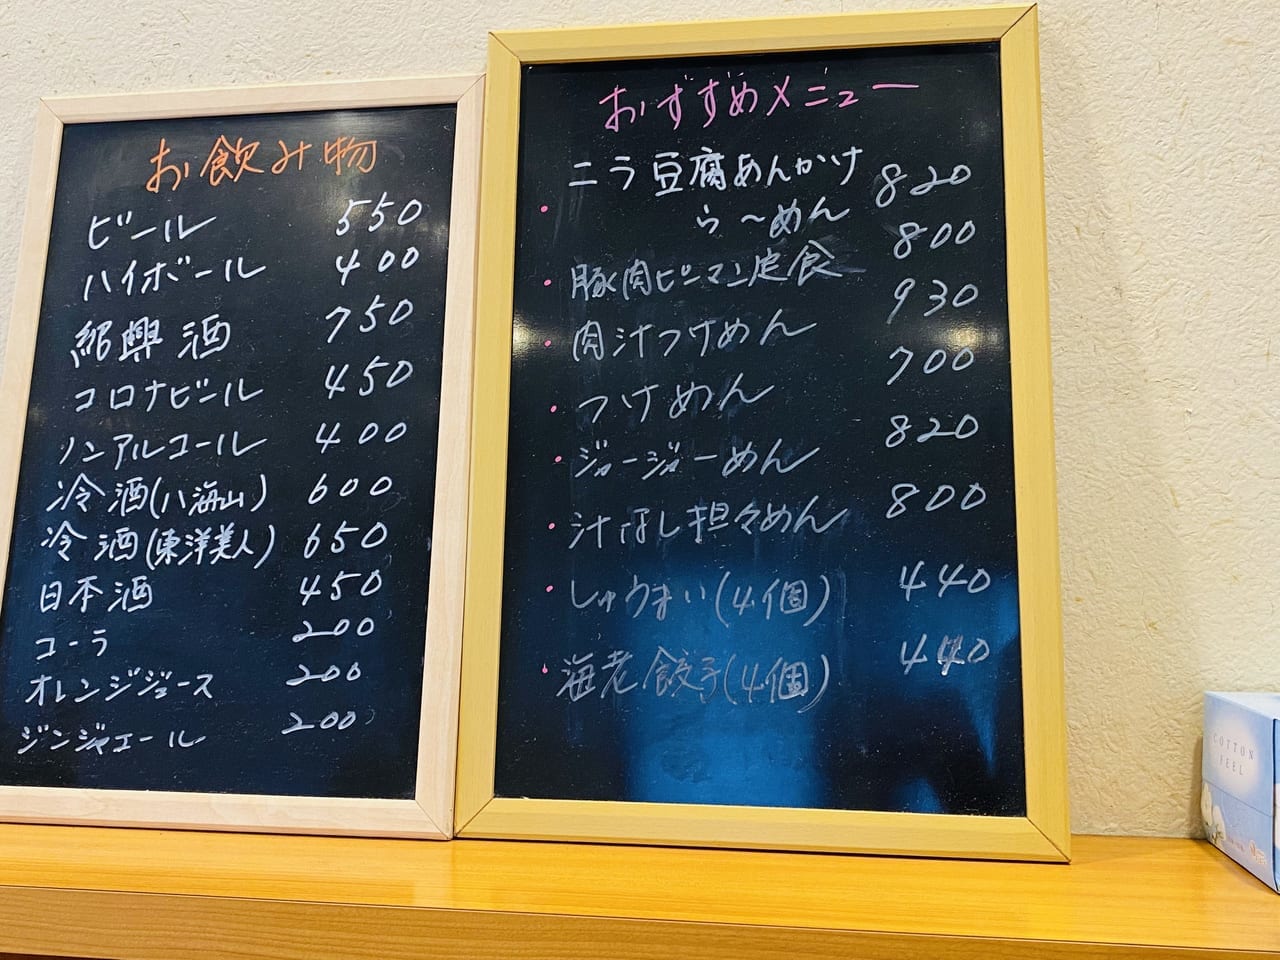 お飲み物
ビール 550
ハイボール 400
紹興酒 750
コロナビール 450
ノンアルコール 400
冷酒(八海山) 600
冷酒(東洋美人) 650
日本酒 450
コーラ 200
オレンジジュース 200
ジンジャエール 200
おすすめメニュー
ニラ豆腐あんかけ
・ら〜めん 820
・豚肉ピーマン定食 800
・肉汁つけめん 930
・つけめん 700
・ジャージャーめん 820
・汁なし担々めん 800
・しゅうまい(4個) 440
・海老餃子(4個) 440
COTTON
FEEL